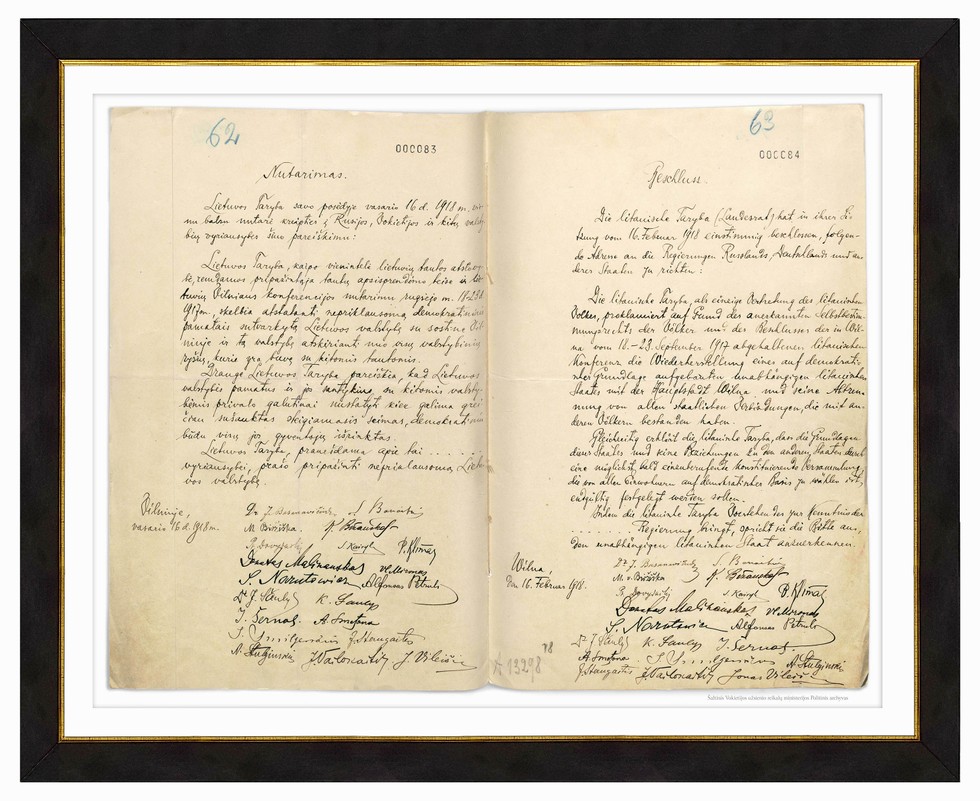 62
000083
Nutarimas.
Lietuvos Taryba savo posėdyje vasario 16 d. 1918 m. vie-
nu balsu nutarė kreiptis į Rusijos, Vokietijos ir kitų valsty-
bių vyriausybes šiuo pareiškimu:
Lietuvos Taryba, kaipo vienintelė lietuvių tautos atstovy-
bė, remdamos pripažintąja tautų apsisprendimo teise ir lie-
tuvių Vilniaus konferencijos nutarimu rugsėjo m. 18-23 d.
1917 m., skelbia atstatanti nepriklausomą demokratiniais
pamatais sutvarkytą Lietuvos valstybę su sostine Vil-
niuje ir tą valstybę atskirianti nuo visų valstybinių
ryšių, kurie yra buvę su kitomis tautomis.
Drauge Lietuvos Taryba pareiškia, kad Lietuvos
valstybės pamatus ir jos santykius su kitomis valsty-
bėmis privalo galutinai nustatyti kiek galima grei-
čiau sušauktas steigiamasis seimas, demokratiniu
būdu visų jos gyventojų išrinktas.
Lietuvos Taryba, pranešdama apie tai . . . . . .
vyriausybei, prašo pripažinti nepriklausomą Lietu-
vos valstybę.
Vilniuje,
vasario 16 d. 1918 m.
Dr. J. Basanavičius. S. Banaitis
M. Biržiška. K. Bizauskas
Pr. Dovydaitis S. Kairys P. Klimas
Donatas Malinauskas Vl. Mironas
S. Narutowicz Alfonsas Petrulis
Dr J. Šaulys K. Šaulys
J. Šernas. A. Smetona
J. Smilgevičius J. Staugaitis
A. Stulginskis J. Vailokaitis J. Vileišis
63
000084
Beschluss.
Die litauische Taryba (Landesrat) hat in ihrer Si-
tzung vom 16. Februar 1918 einstimmig beschlossen, folgen-
de Adresse an die Regierungen Russlands, Deutschlands und an-
derer Staaten zu richten:
Die litauische Taryba, als einzige Vertretung des litauischen
Volkes, proklamiert auf Grund des anerkannten Selbstbestim-
mungsrechts der Völker und des Beschlusses der in Wil-
na vom 18.–23. September 1917 abgehaltenen litauischen
Konferenz die Wiederherstellung eines auf demokrati-
scher Grundlage aufgebauten unabhängigen litauischen
Staates mit der Hauptstadt Wilna und seine Abtren-
nung von allen staatlichen Verbindungen, die mit an-
deren Völkern bestanden haben.
Gleichzeitig erklärt die litauische Taryba, dass die Grundlagen
dieses Staates und seine Beziehungen zu den anderen Staaten durch
eine möglichst bald einzuberufende konstituierende Versammlung,
die von allen Einwohnern auf demokratischer Basis zu wählen ist,
endgültig festgelegt werden sollen.
Indem die litauische Taryba Vorstehendes zur Kenntnis der
. . . . . . Regierung bringt, spricht sie die Bitte aus,
den unabhängigen litauischen Staat anzuerkennen.
Wilna,
den 16. Februar 1918.
Dr. J. Basanavičius S. Banaitis
M. v. Biržiška K. Bizauskas
Pr. Dovydaitis S. Kairys P. Klimas
Donatas Malinauskas Vl. Mironas
S. Narutowicz Alfonsas Petrulis
Dr. J. Šaulys K. Šaulys J. Šernas.
A. Smetona J. Smilgevičius A. Stulginskis
J. Staugaitis J. Vailokaitis Jonas Vileišis
13298
18
Šaltinis: Vokietijos užsienio reikalų ministerijos Politinis archyvas